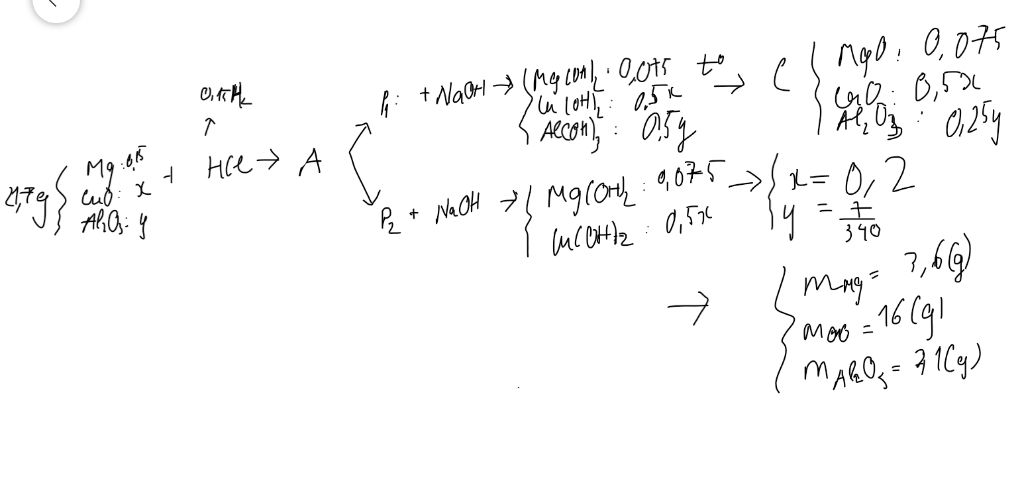 0,15 H₂
↑
21,7g { Mg: 0,15
CuO: x
Al₂O₃: y
+ HCl → A
P₁: + NaOH → { Mg(OH)₂: 0,075
Cu(OH)₂: 0,5x
Al(OH)₃: 0,5y
t° → C { MgO: 0,075
CuO: 0,5x
Al₂O₃: 0,25y
P₂ + NaOH → { Mg(OH)₂: 0,075
Cu(OH)₂: 0,5x
→ { x = 0,2
y = 7/340
→ { mMg = 3,6(g)
mCuO = 16(g)
mAl₂O₃ = 2,1(g)